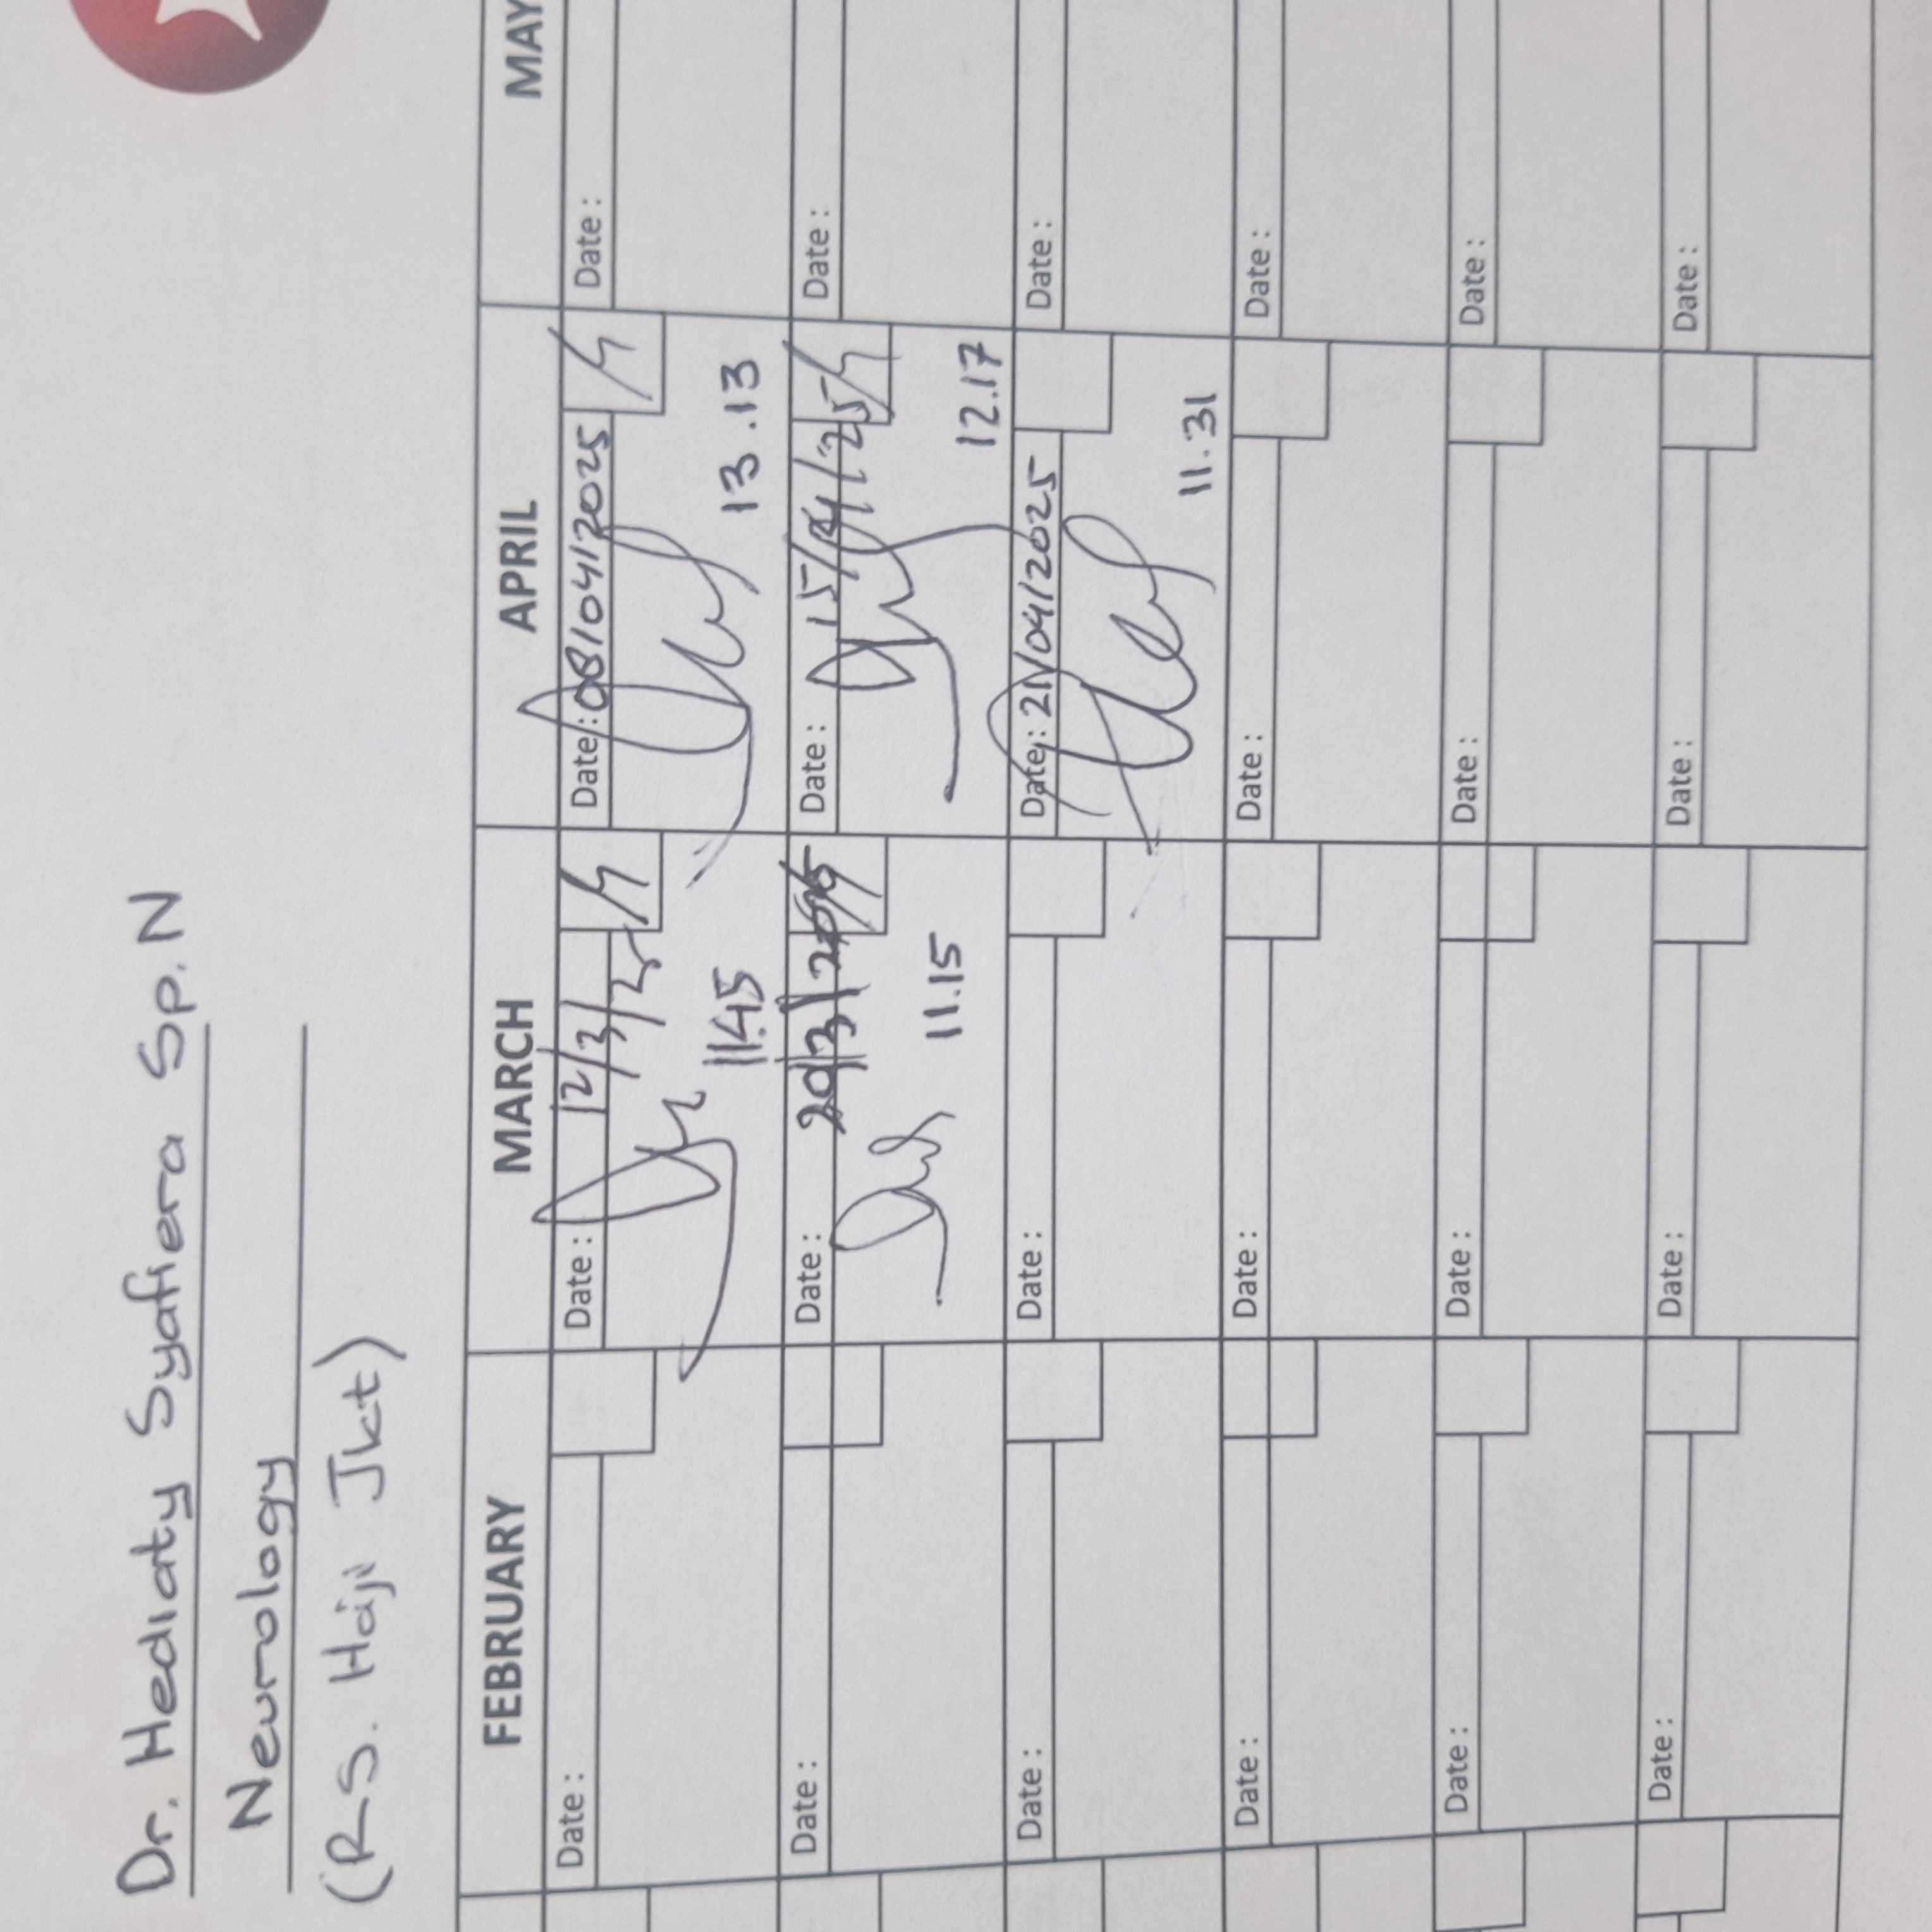 Dr. Hediaty Syafiera Sp.N
Neurology
(RS. Haji Jkt)
FEBRUARY MARCH APRIL MAY
Date : Date : 12/3/25 Date : 08/04/2025 Date :
11.45 13.13
Date : Date : 20/3/2025 Date : 15/04/25 Date :
11.15 12.17
Date : Date : Date : 21/04/2025 Date :
11.31
Date : Date : Date : Date :
Date : Date : Date : Date :
Date : Date : Date : Date :